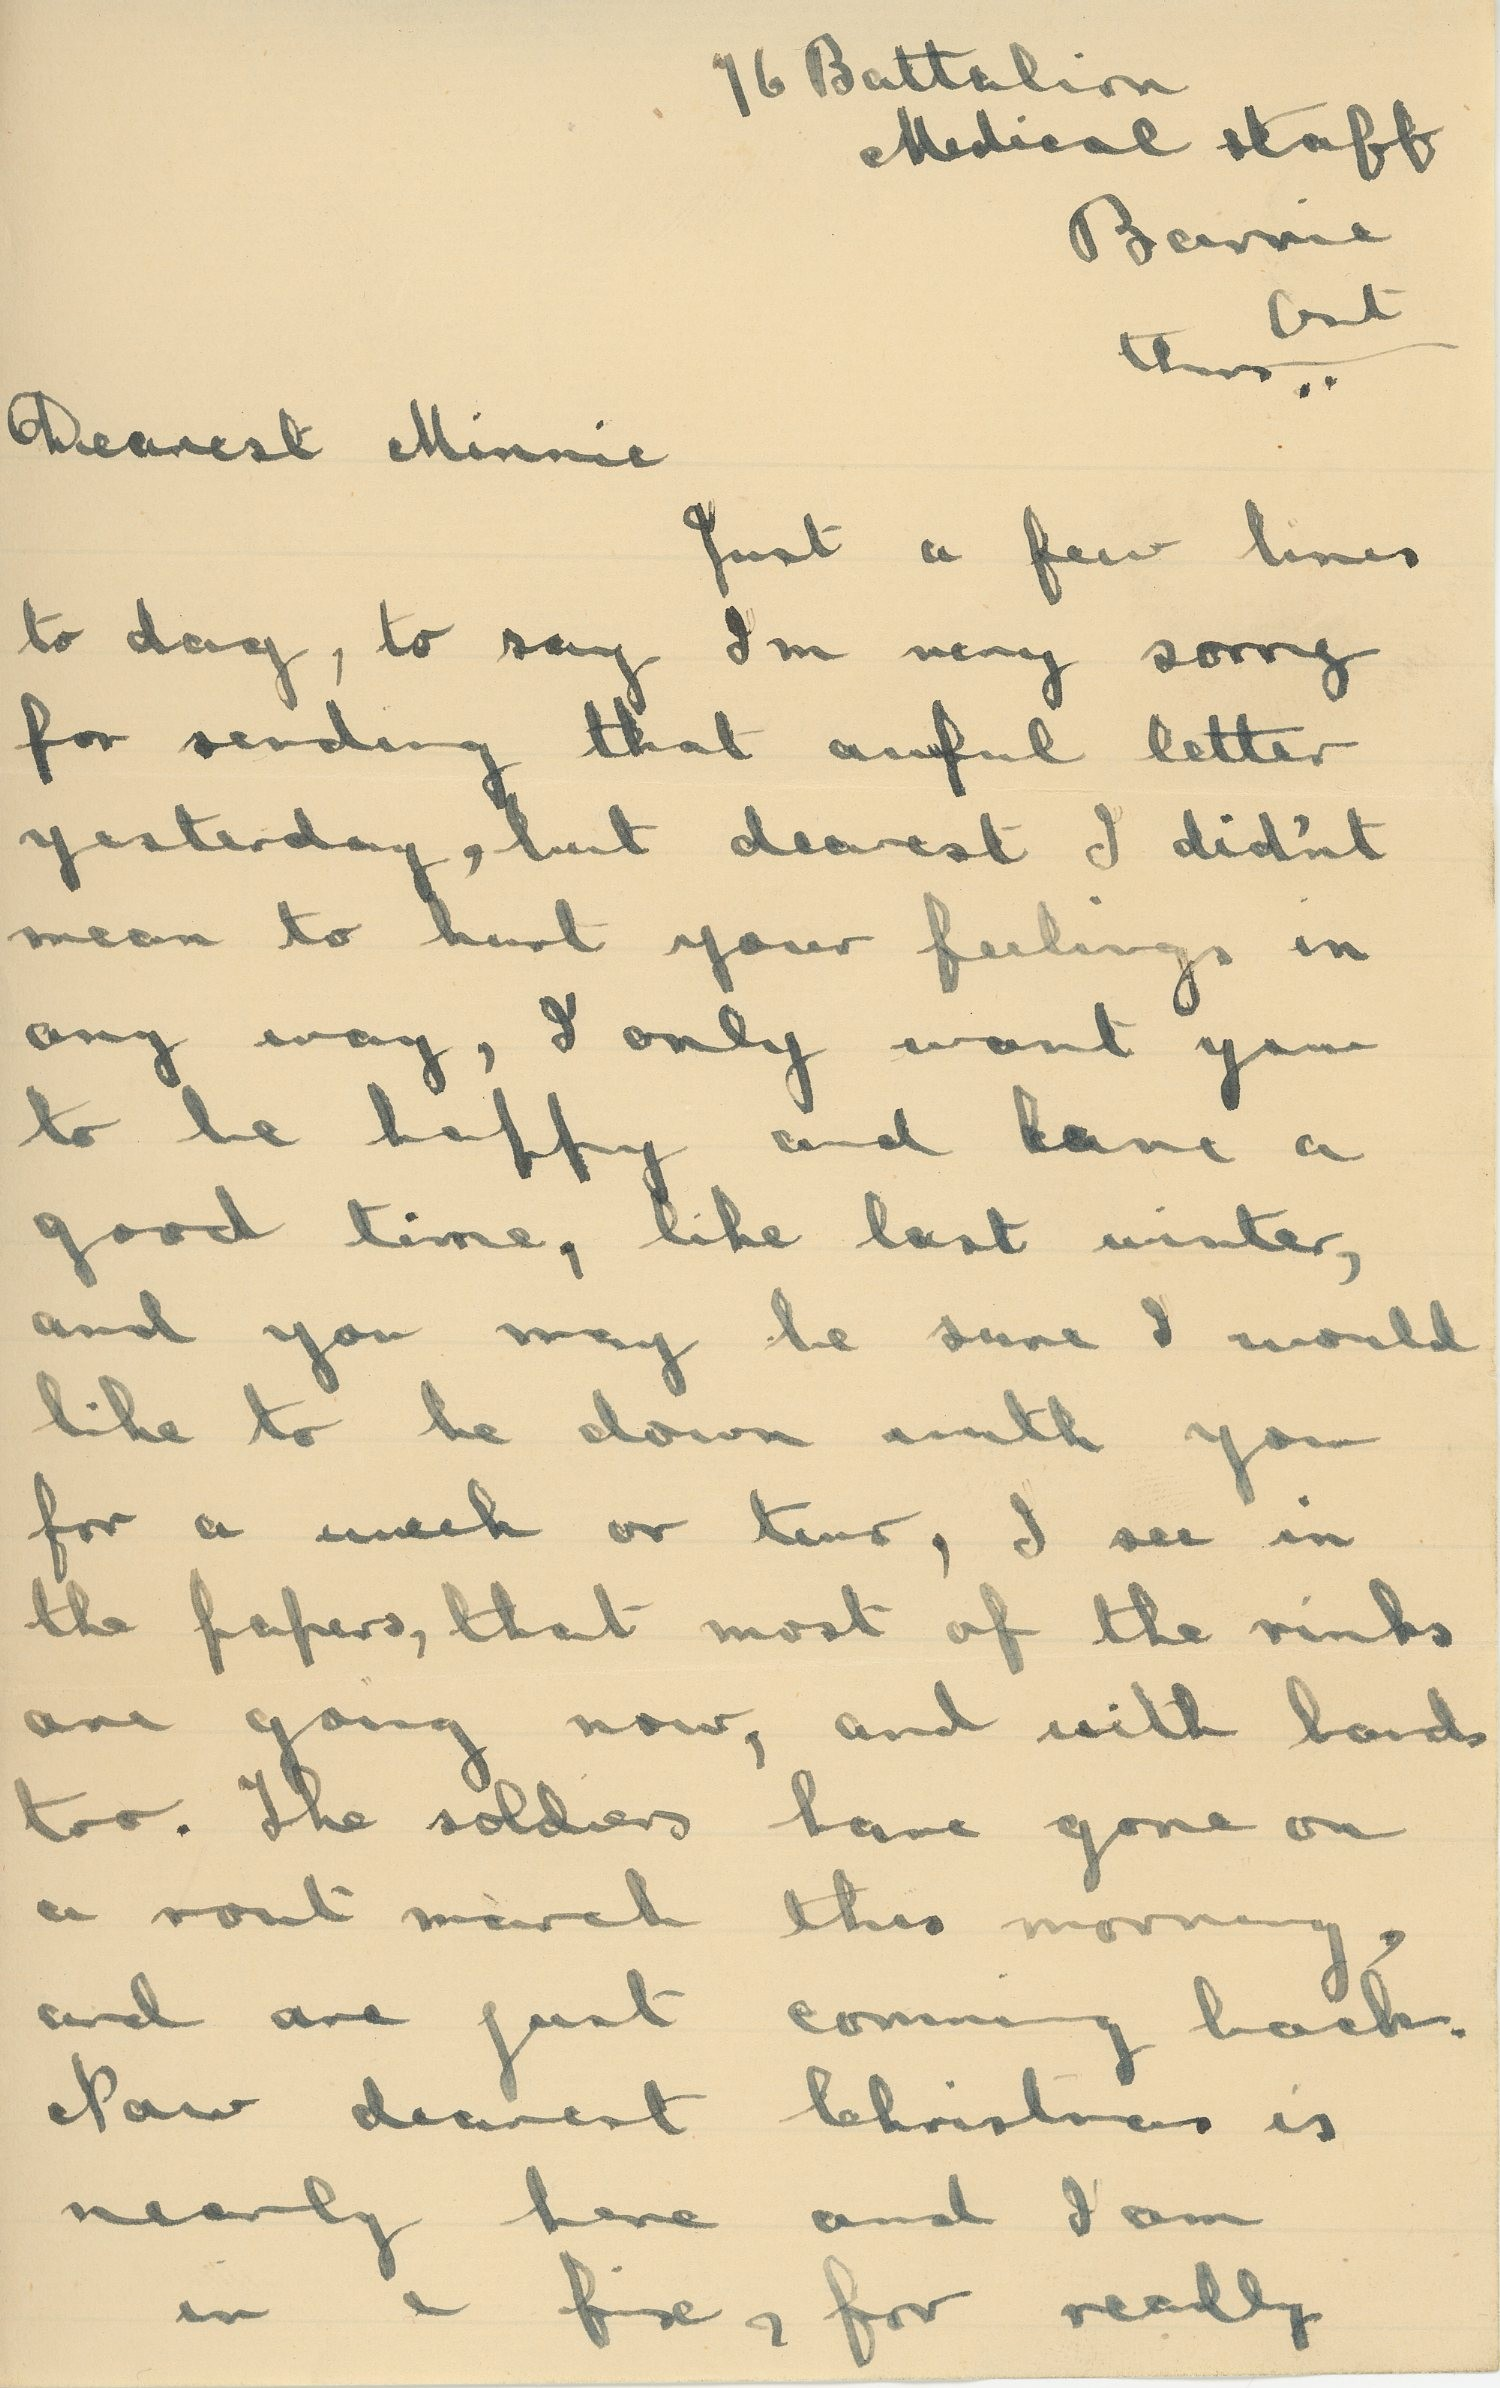 76 Battalion
Medical staff
Barrie
Ont
thurs..
Dearest Minnie
Just a few lines
to day, to say I'm very sorry
for sending that awful letter
yesterday, but dearest I did'nt
mean to hurt your feelings in
any way, I only want you
to be happy and have a
good time, like last winter,
and you may be sure I would
like to be down with you
for a week or two, I see in
the papers, that most of the rinks
are going now, and with bands
too. The soldiers have gone on
a rout march this morning,
and are just comming back.
Now dearest Christmas is
nearly here and I am
in a fix, for really